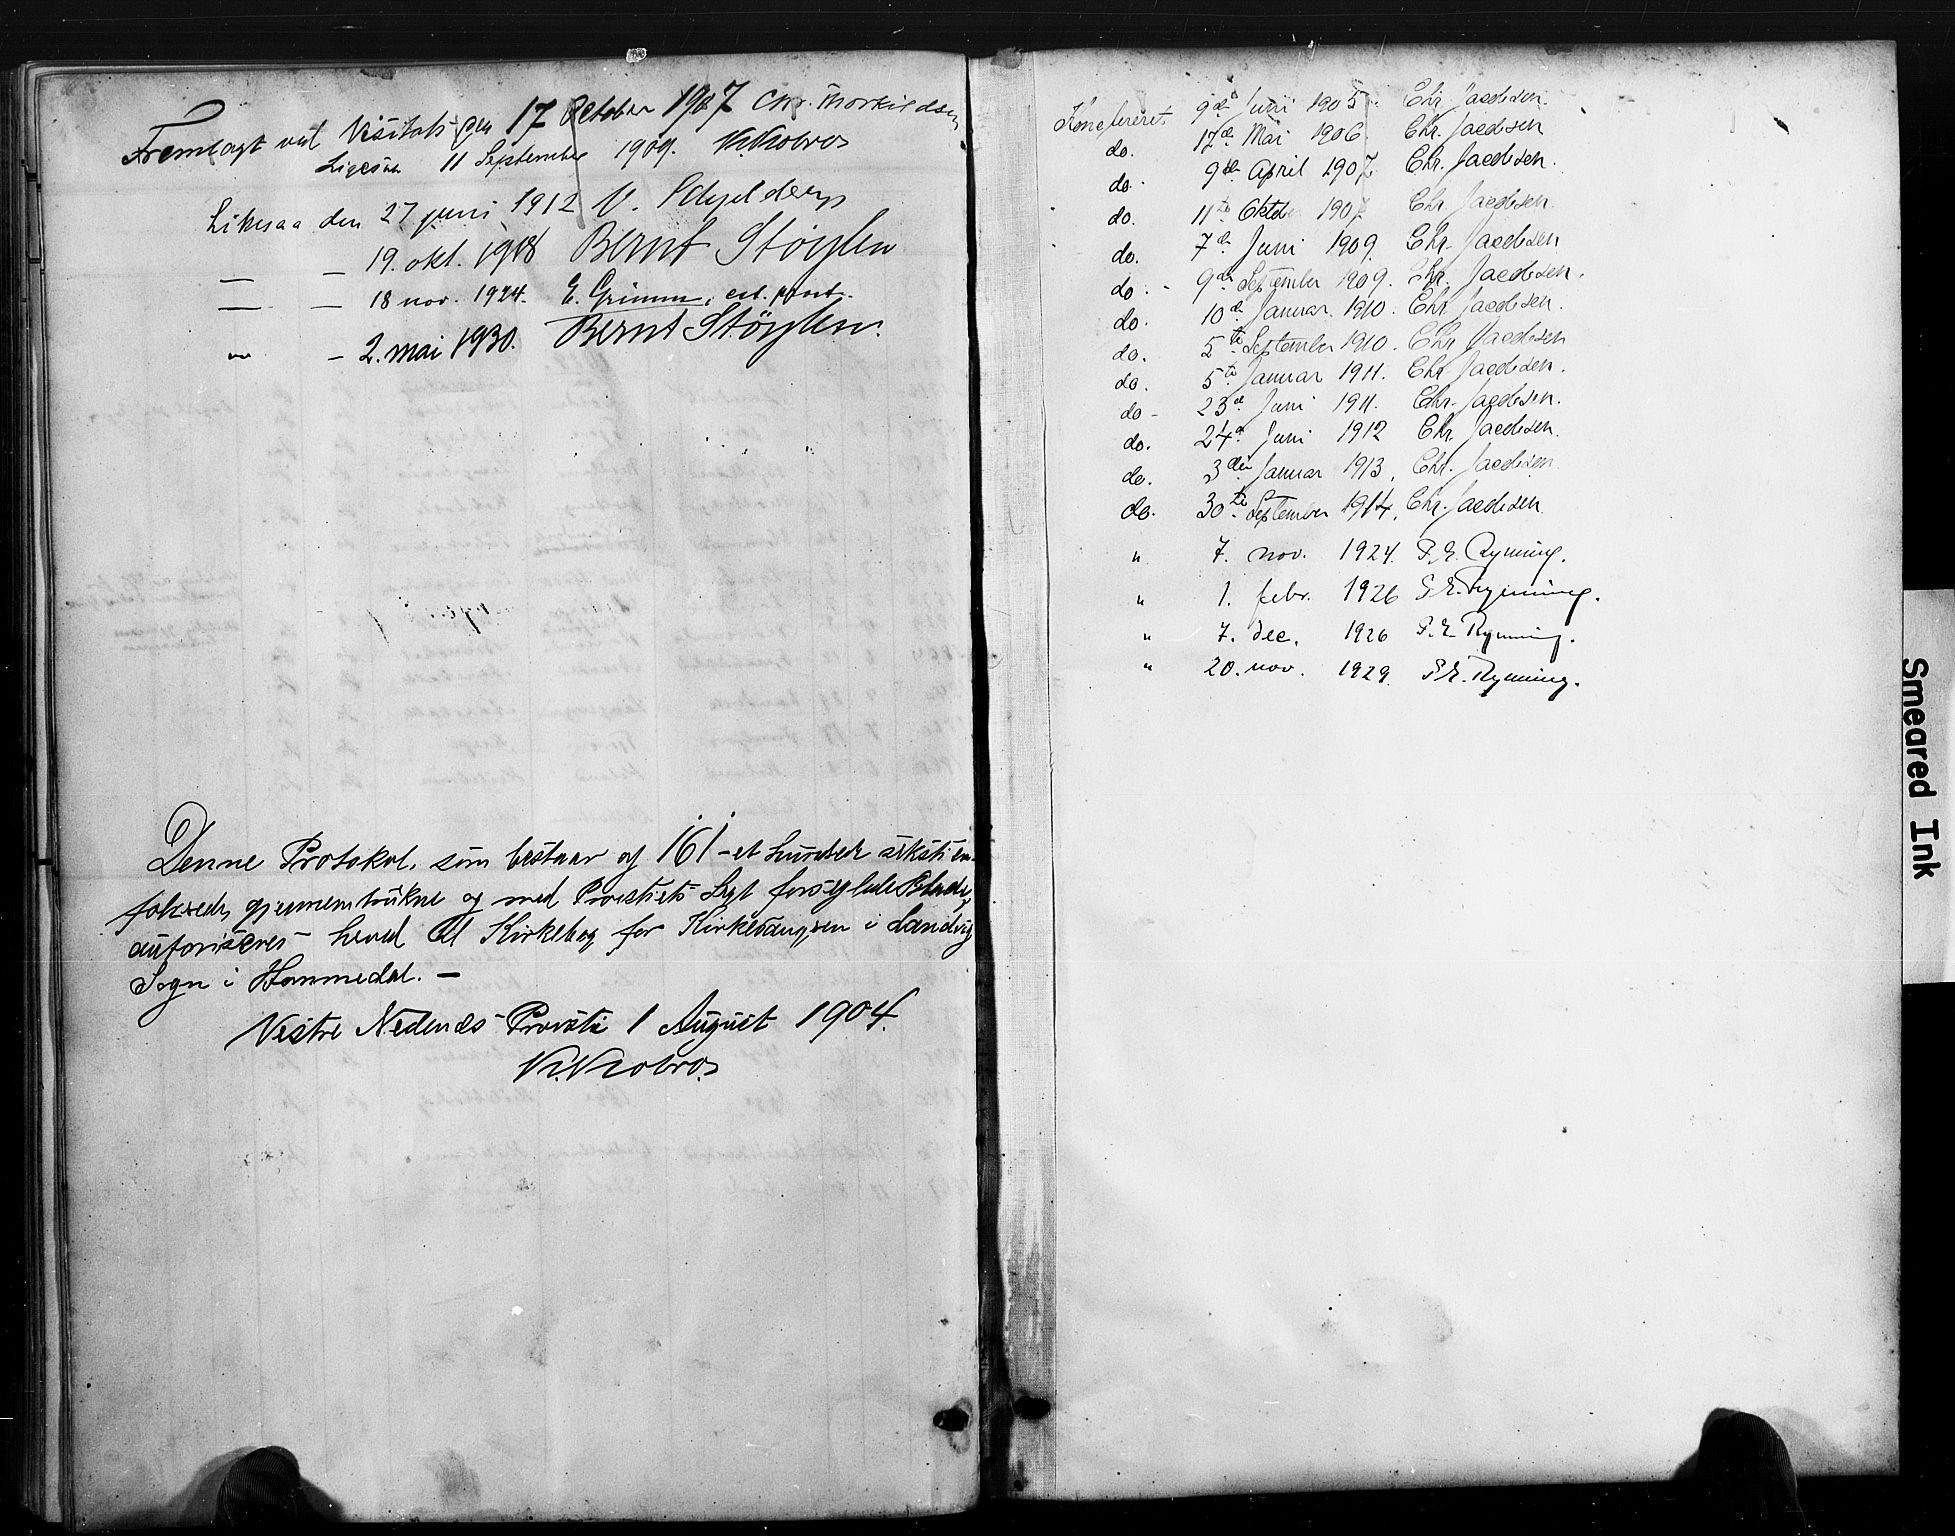 Fremlagt ved Visitats den 17 October 1907 Chr. Thorkildsen
Ligesaa 11 September 1909. K. Kobro
Likesaa den 27 juni 1912 V. Schjelderup
— — 19. okt. 1918 Bernt Støylen
— — 18 nov. 1924. E. Grimm, const.
" — 2. mai 1930. Bernt Støylen.
Denne Protokol, som bestaar af 161 – et hundrede
gjennemtrukne og med Provstiets Segl forseglede Blade,
autoriseres herved til Kirkebog for Kirkesangeren i Landvig
Sogn i Hommedal. —
Vestre Nedenes Provsti 1 August 1904.
K. Kobro.
Konfereret 9de Juni 1905. Chr. Jacobsen.
do. 17de Mai 1906 Chr. Jacobsen
do. 9de April 1907 Chr. Jacobsen.
do. 11te Oktober 1907 Chr. Jacobsen.
do. 7de Juni 1909. Chr. Jacobsen
do. 9de September 1909. Chr. Jacobsen.
do. 10de Januar 1910. Chr. Jacobsen.
do. 5te September 1910. Chr. Jacobsen
do. 5te Januar 1911. Chr. Jacobsen.
do. 23de Juni 1911. Chr. Jacobsen.
do. 24de Juni 1912 Chr. Jacobsen.
do. 3die Januar 1913. Chr. Jacobsen.
do. 30te September 1914. Chr. Jacobsen.
" 7. nov. 1924. P. E. Rynning.
" 1. febr. 1926 P. E. Rynning.
" 7. dec. 1926 P. E. Rynning.
" 20. nov. 1929 P. E. Rynning.
Smeared Ink